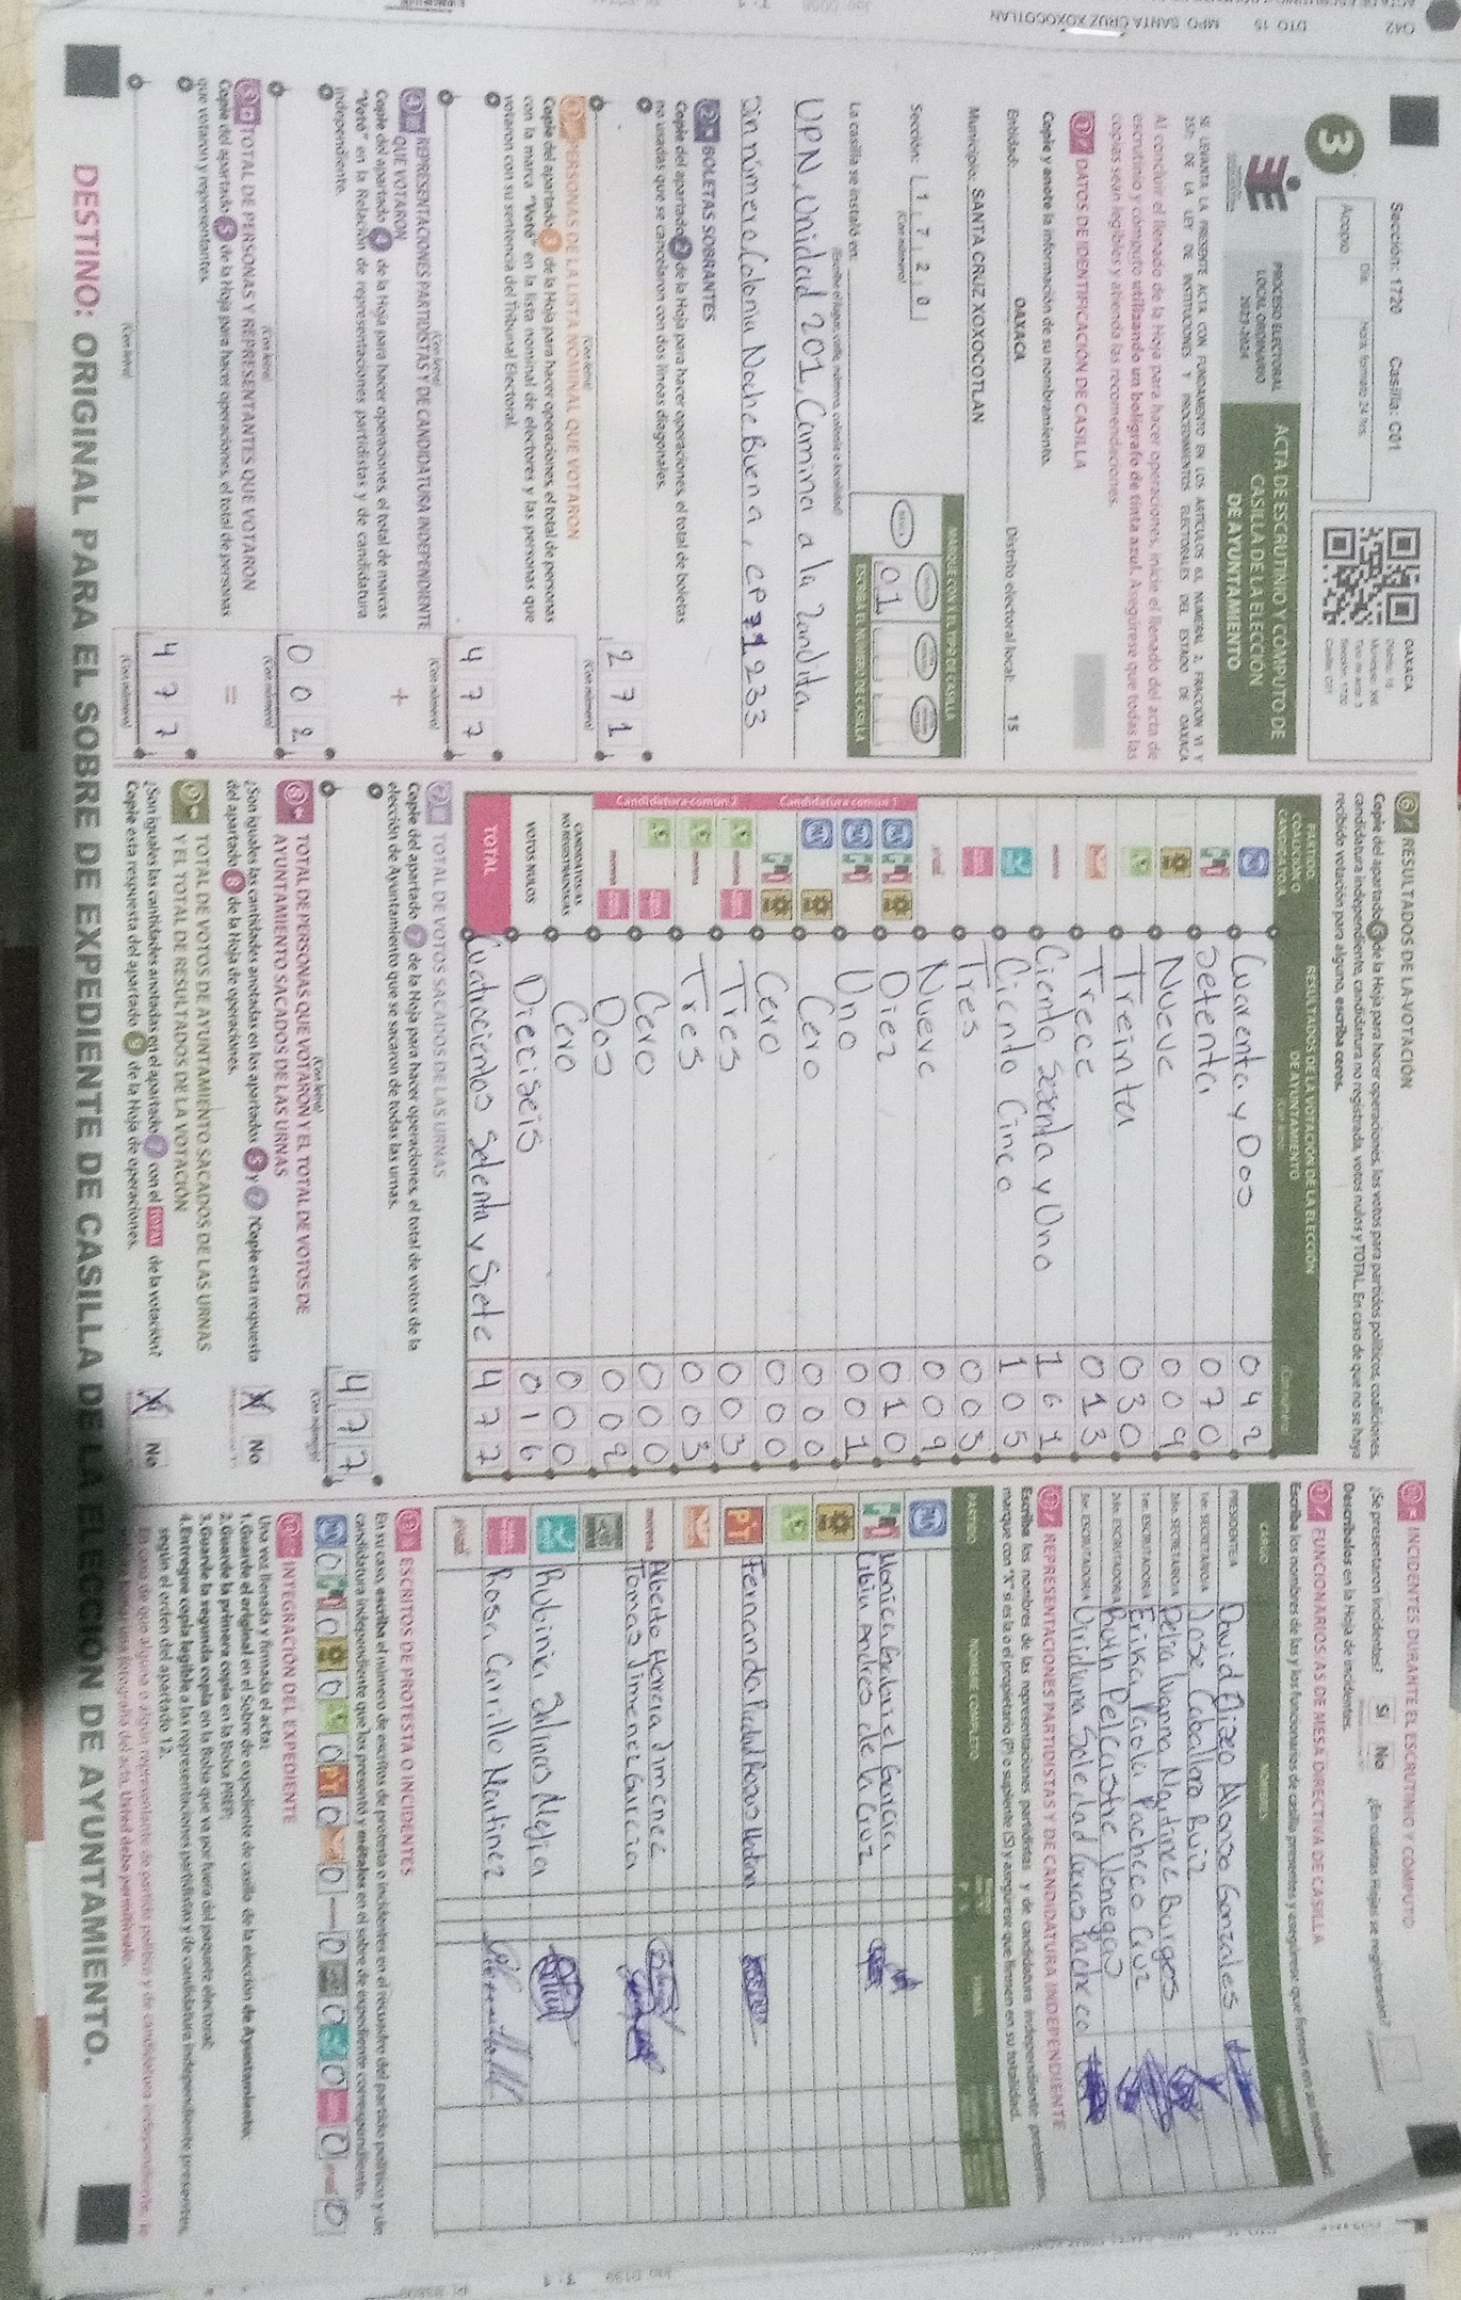 Sección: 1720 Casilla: C01
3
Acopio
Día:
Hora, formato 24 hrs.
OAXACA
PROCESO ELECTORAL
LOCAL ORDINARIO
2023-2024
ACTA DE ESCRUTINIO Y CÓMPUTO DE
CASILLA DE LA ELECCIÓN
DE AYUNTAMIENTO
Al concluir el llenado de la Hoja para hacer operaciones, inicie el llenado del acta de
escrutinio y cómputo utilizando un bolígrafo de tinta azul. Asegúrese que todas las
copias sean legibles y atienda las recomendaciones.
1 DATOS DE IDENTIFICACIÓN DE CASILLA
Copie y anote la información de su nombramiento.
Entidad: OAXACA Distrito electoral local: 15
Municipio: SANTA CRUZ XOXOCOTLAN
Sección: 1 7 2 0
(Con número)
MARQUE CON X EL TIPO DE CASILLA
ESCRIBA EL NÚMERO DE CASILLA
01
La casilla se instaló en:
UPN, Unidad 201, Camino a la Zandita
Sin número, Colonia Noche Buena, CP 71233
2 BOLETAS SOBRANTES
Copie del apartado 2 de la Hoja para hacer operaciones, el total de boletas
no usadas que se cancelaron con dos líneas diagonales.
2 7 1
(Con letra) (Con número)
3 PERSONAS DE LA LISTA NOMINAL QUE VOTARON
Copie del apartado 3 de la Hoja para hacer operaciones, el total de personas
con la marca "Votó" en la lista nominal de electores y las personas que
votaron con su sentencia del Tribunal Electoral.
4 7 7
(Con letra) (Con número)
4 REPRESENTACIONES PARTIDISTAS Y DE CANDIDATURA INDEPENDIENTE
QUE VOTARON
Copie del apartado 4 de la Hoja para hacer operaciones, el total de marcas
"Votó" en la Relación de representaciones partidistas y de candidatura
independiente.
+
0 0 2
(Con letra) (Con número)
5 TOTAL DE PERSONAS Y REPRESENTANTES QUE VOTARON
Copie del apartado 5 de la Hoja para hacer operaciones, el total de personas
que votaron y representantes.
=
4 7 7
(Con letra) (Con número)
6 RESULTADOS DE LA VOTACIÓN
Copie del apartado 6 de la Hoja para hacer operaciones, los votos para partidos políticos, coaliciones,
candidatura independiente, candidatura no registrada, votos nulos y TOTAL. En caso de que no se haya
recibido votación para alguno, escriba ceros.
PARTIDO,
COALICIÓN O
CANDIDATO/A
RESULTADOS DE LA VOTACIÓN DE LA ELECCIÓN
DE AYUNTAMIENTO
Cuarenta y Dos 042
Setenta 070
Nueve 009
Treinta 030
Trece 013
Ciento Sesenta y Uno 161
Ciento Cinco 105
Tres 003
Nueve 009
Candidatura común 1
Diez 010
Uno 001
Cero 000
Cero 000
Candidatura común 2
Tres 003
Tres 003
Cero 000
Dos 002
CANDIDATOS/AS
NO REGISTRADOS/AS
Cero 000
VOTOS NULOS Dieciseis 016
TOTAL Cuatrocientos Setenta y Siete 477
7 TOTAL DE VOTOS SACADOS DE LAS URNAS
Copie del apartado 7 de la Hoja para hacer operaciones, el total de votos de la
elección de Ayuntamiento que se sacaron de todas las urnas.
4 7 7
(Con letra) (Con número)
8 TOTAL DE PERSONAS QUE VOTARON Y EL TOTAL DE VOTOS DE
AYUNTAMIENTO SACADOS DE LAS URNAS
¿Son iguales las cantidades anotadas en los apartados 5 y 7? Copie esta respuesta
del apartado 8 de la Hoja de operaciones.
No
9 TOTAL DE VOTOS DE AYUNTAMIENTO SACADOS DE LAS URNAS
Y EL TOTAL DE RESULTADOS DE LA VOTACIÓN
¿Son iguales las cantidades anotadas en el apartado 7 con el TOTAL de la votación?
Copie esta respuesta del apartado 9 de la Hoja de operaciones.
No
10 INCIDENTES DURANTE EL ESCRUTINIO Y CÓMPUTO
¿Se presentaron incidentes? Sí No ¿En cuántas Hojas se registraron?
Descríbalos en la Hoja de incidentes.
11 FUNCIONARIOS/AS DE MESA DIRECTIVA DE CASILLA
CARGO NOMBRES
PRESIDENTE/A David Eliseo Alonso Gonzales
1er. SECRETARIO/A Jose Caballero Ruiz
2do. SECRETARIO/A Delia Ivanna Martinez Burgos
1er. ESCRUTADOR/A Erika Paola Pacheco Cruz
2do. ESCRUTADOR/A Ruth Pelcastre Venegas
3er. ESCRUTADOR/A Viridiana Soledad Cuevas Pacheco
12 REPRESENTACIONES PARTIDISTAS Y DE CANDIDATURA INDEPENDIENTE
Escriba los nombres de las representaciones partidistas y de candidatura independiente presentes,
marque con "X" si es la o el propietario (P) o suplente (S) y asegúrese que firmen en su totalidad.
PARTIDO NOMBRE COMPLETO FIRMA
PAN
Monica Gabriel Garcia
Libia Andres de la Cruz
PT
morena
Alberto Herrera Jimenez
Tomas Jimenez Garcia
Rubinia Salinas Mejia
Rosa Carrillo Martinez
13 ESCRITOS DE PROTESTA O INCIDENTES
En su caso, escriba el número de escritos de protesta o incidentes en el recuadro del partido político y de
candidatura independiente que los presentó y métalos en el sobre de expediente correspondiente.
0 0 0 0 PT 0 0 0 0 0 0
14 INTEGRACIÓN DEL EXPEDIENTE
Una vez llenada y firmada el acta:
1. Guarde el original en el Sobre de expediente de casilla de la elección de Ayuntamiento;
2. Guarde la primera copia en la Bolsa PREP;
3. Guarde la segunda copia en la Bolsa que va por fuera del paquete electoral;
4. Entregue copia legible a las representaciones partidistas y de candidatura independiente presentes,
según el orden del apartado 12.
DESTINO: ORIGINAL PARA EL SOBRE DE EXPEDIENTE DE CASILLA DE LA ELECCIÓN DE AYUNTAMIENTO.